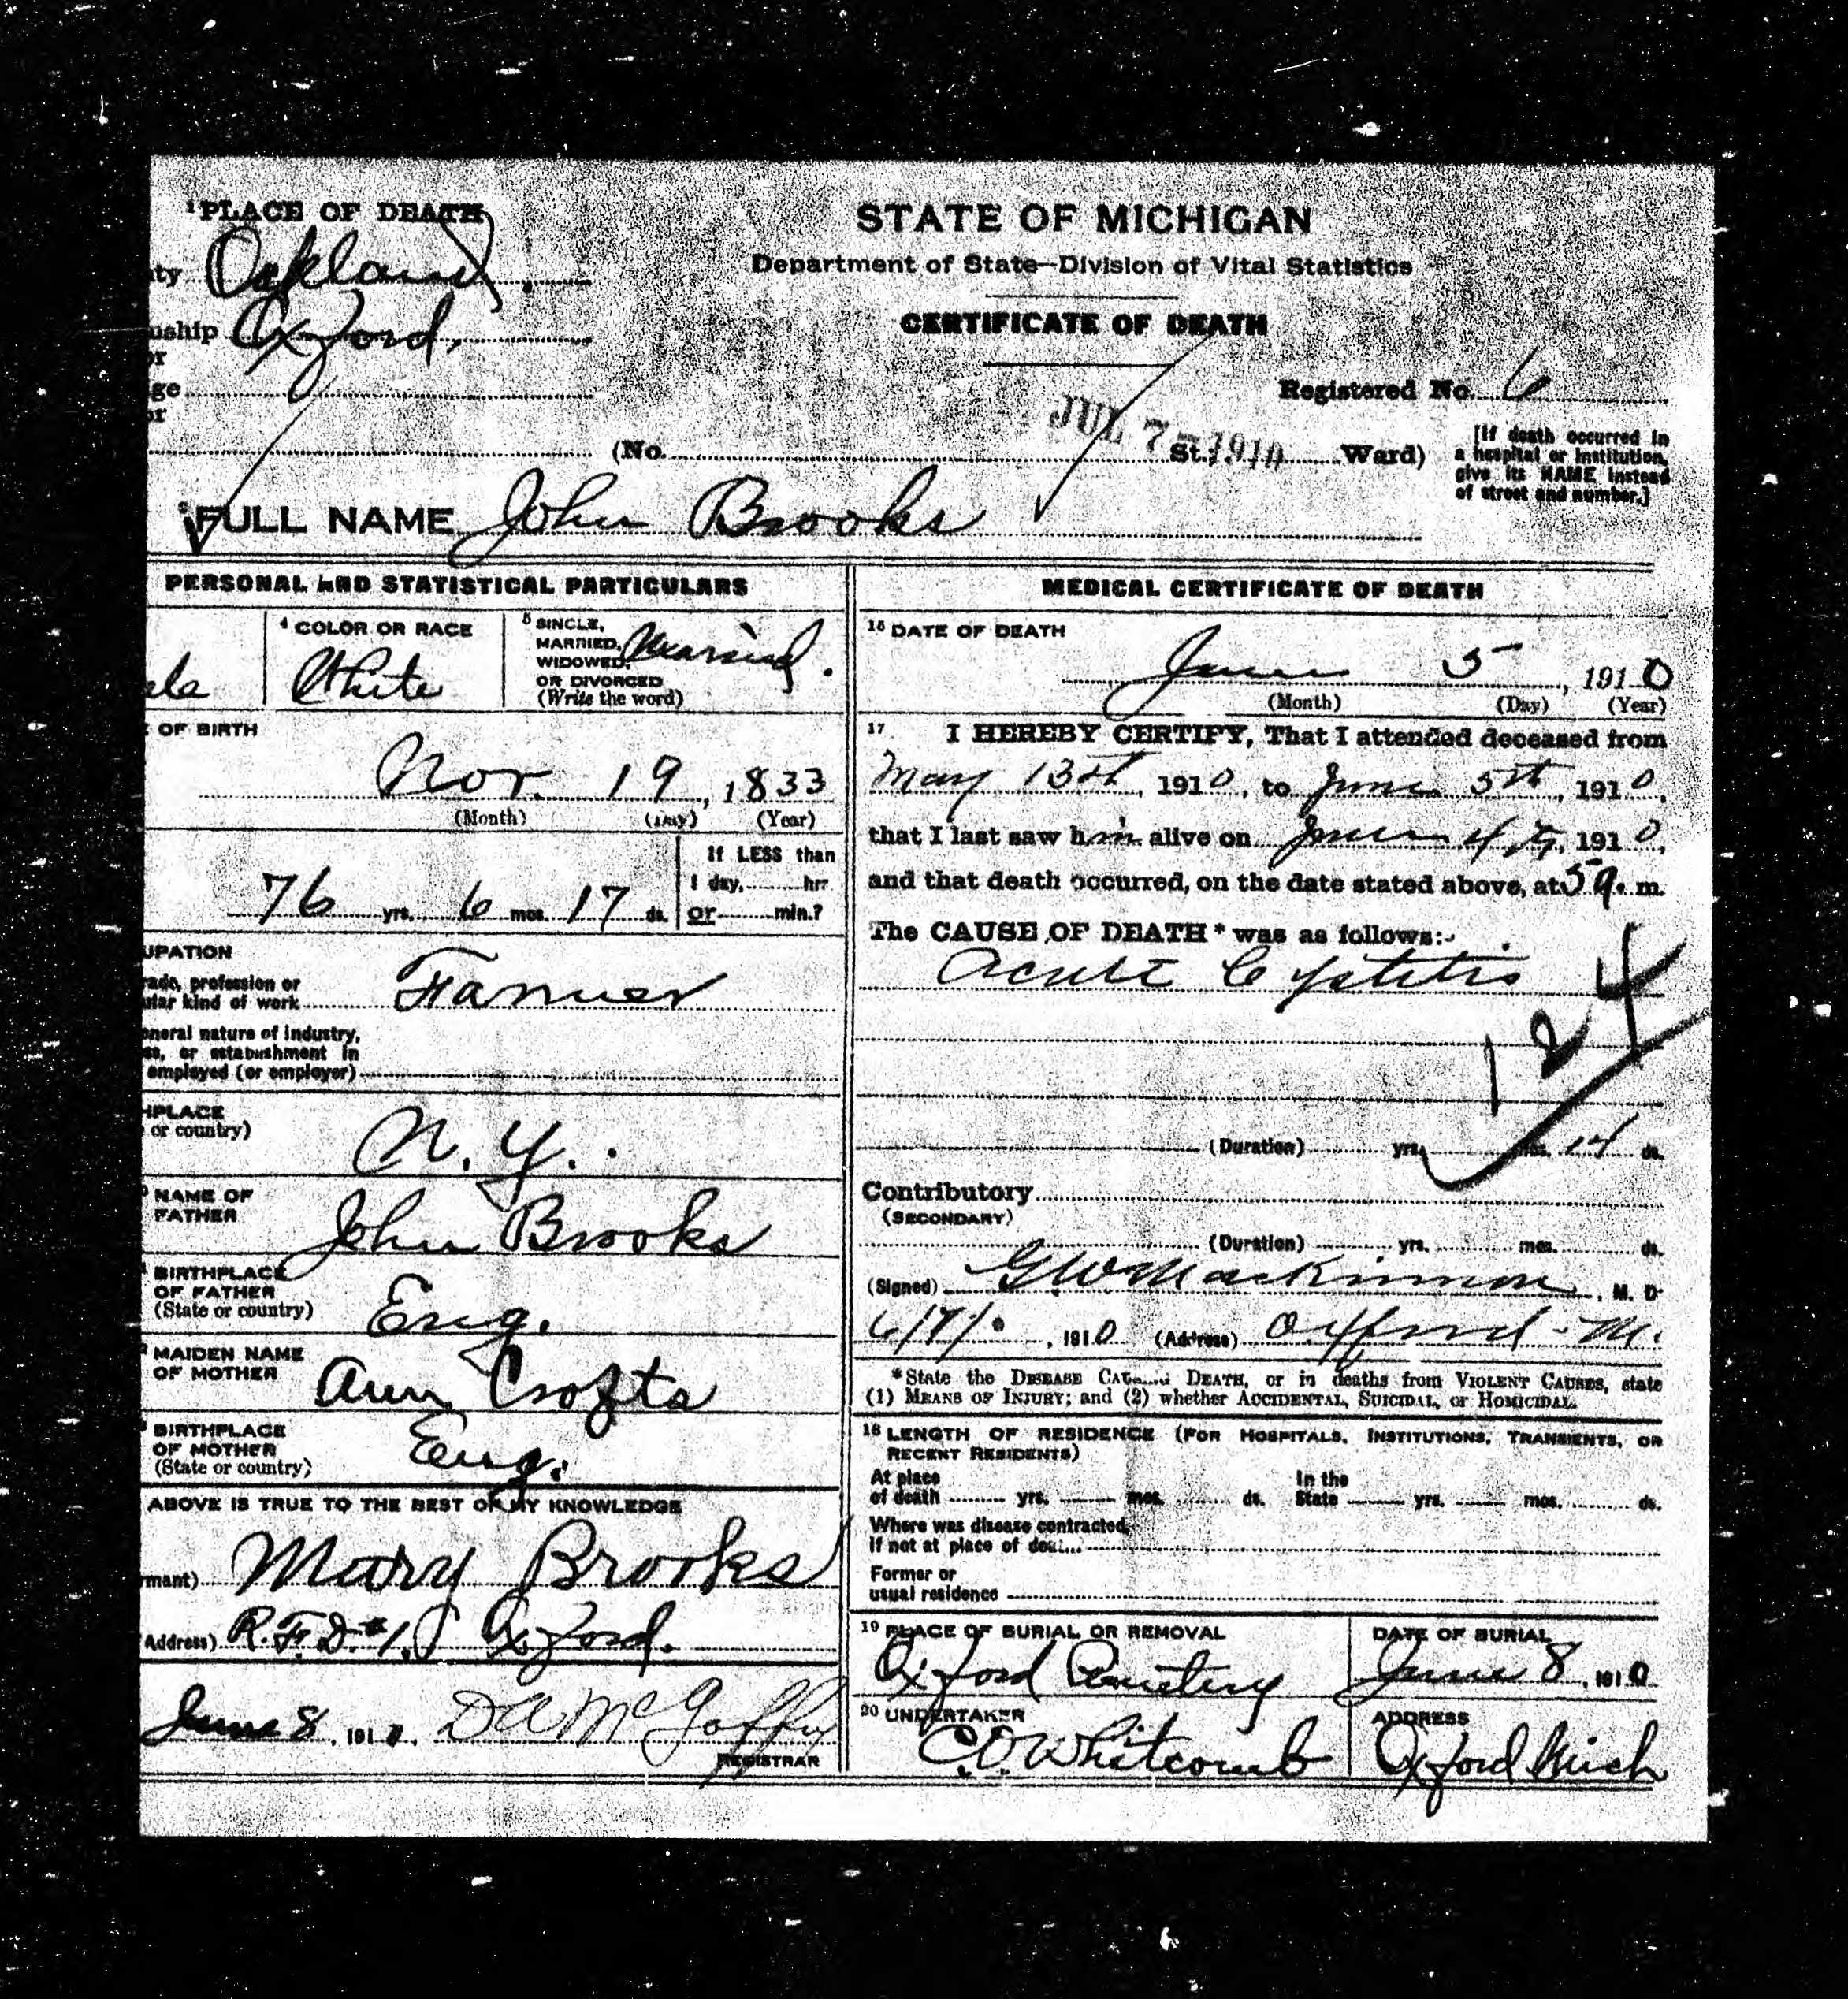 1 PLACE OF DEATH
ty Oakland
nship Oxford.
or
ge
or
STATE OF MICHIGAN
Department of State—Division of Vital Statistics
CERTIFICATE OF DEATH
Registered No. 6
JUL 7 - 1910
(No. St. Ward)
[If death occurred in
a hospital or institution,
give its NAME instead
of street and number.]
FULL NAME John Brooks
PERSONAL AND STATISTICAL PARTICULARS
4 COLOR OR RACE
White
5 SINGLE,
MARRIED,
WIDOWED,
OR DIVORCED
(Write the word)
Married.
OF BIRTH
Nov. 19, 1833
(Month) (Day) (Year)
76 yrs. 6 mos. 17 ds.
If LESS than
1 day, hrs
or min.?
UPATION
rade, profession or
ular kind of work Farmer
eneral nature of industry,
ss, or establishment in
employed (or employer)
HPLACE
or country)
N. Y.
NAME OF
FATHER
John Brooks
BIRTHPLACE
OF FATHER
(State or country)
Eng.
MAIDEN NAME
OF MOTHER
Ann Crofts
BIRTHPLACE
OF MOTHER
(State or country)
Eng.
ABOVE IS TRUE TO THE BEST OF MY KNOWLEDGE
rmant) Mary Brooks
Address) R.F.D. #1. Oxford.
June 8, 1910. D A McGaffey
REGISTRAR
MEDICAL CERTIFICATE OF DEATH
16 DATE OF DEATH
June 5, 1910
(Month) (Day) (Year)
17 I HEREBY CERTIFY, That I attended deceased from
May 13th, 1910, to June 5th, 1910,
that I last saw him alive on June 4th, 1910,
and that death occurred, on the date stated above, at 5 a. m.
The CAUSE OF DEATH* was as follows:
Acute Cystitis
124
(Duration) yrs. mos. 14 ds.
Contributory
(SECONDARY)
(Duration) yrs. mos. ds.
(Signed) G W MacKinnon, M. D.
, 1910 (Address) Oxford - M.
*State the DISEASE CAUSING DEATH, or in deaths from VIOLENT CAUSES, state
(1) MEANS OF INJURY; and (2) whether ACCIDENTAL, SUICIDAL, or HOMICIDAL.
18 LENGTH OF RESIDENCE (FOR HOSPITALS, INSTITUTIONS, TRANSIENTS, OR
RECENT RESIDENTS)
At place
of death yrs. mos. ds.
In the
State yrs. mos. ds.
Where was disease contracted,
if not at place of death?
Former or
usual residence
19 PLACE OF BURIAL OR REMOVAL
Oxford Cemetery
DATE OF BURIAL
June 8, 1910
20 UNDERTAKER
C.O. Whitcomb
ADDRESS
Oxford Mich